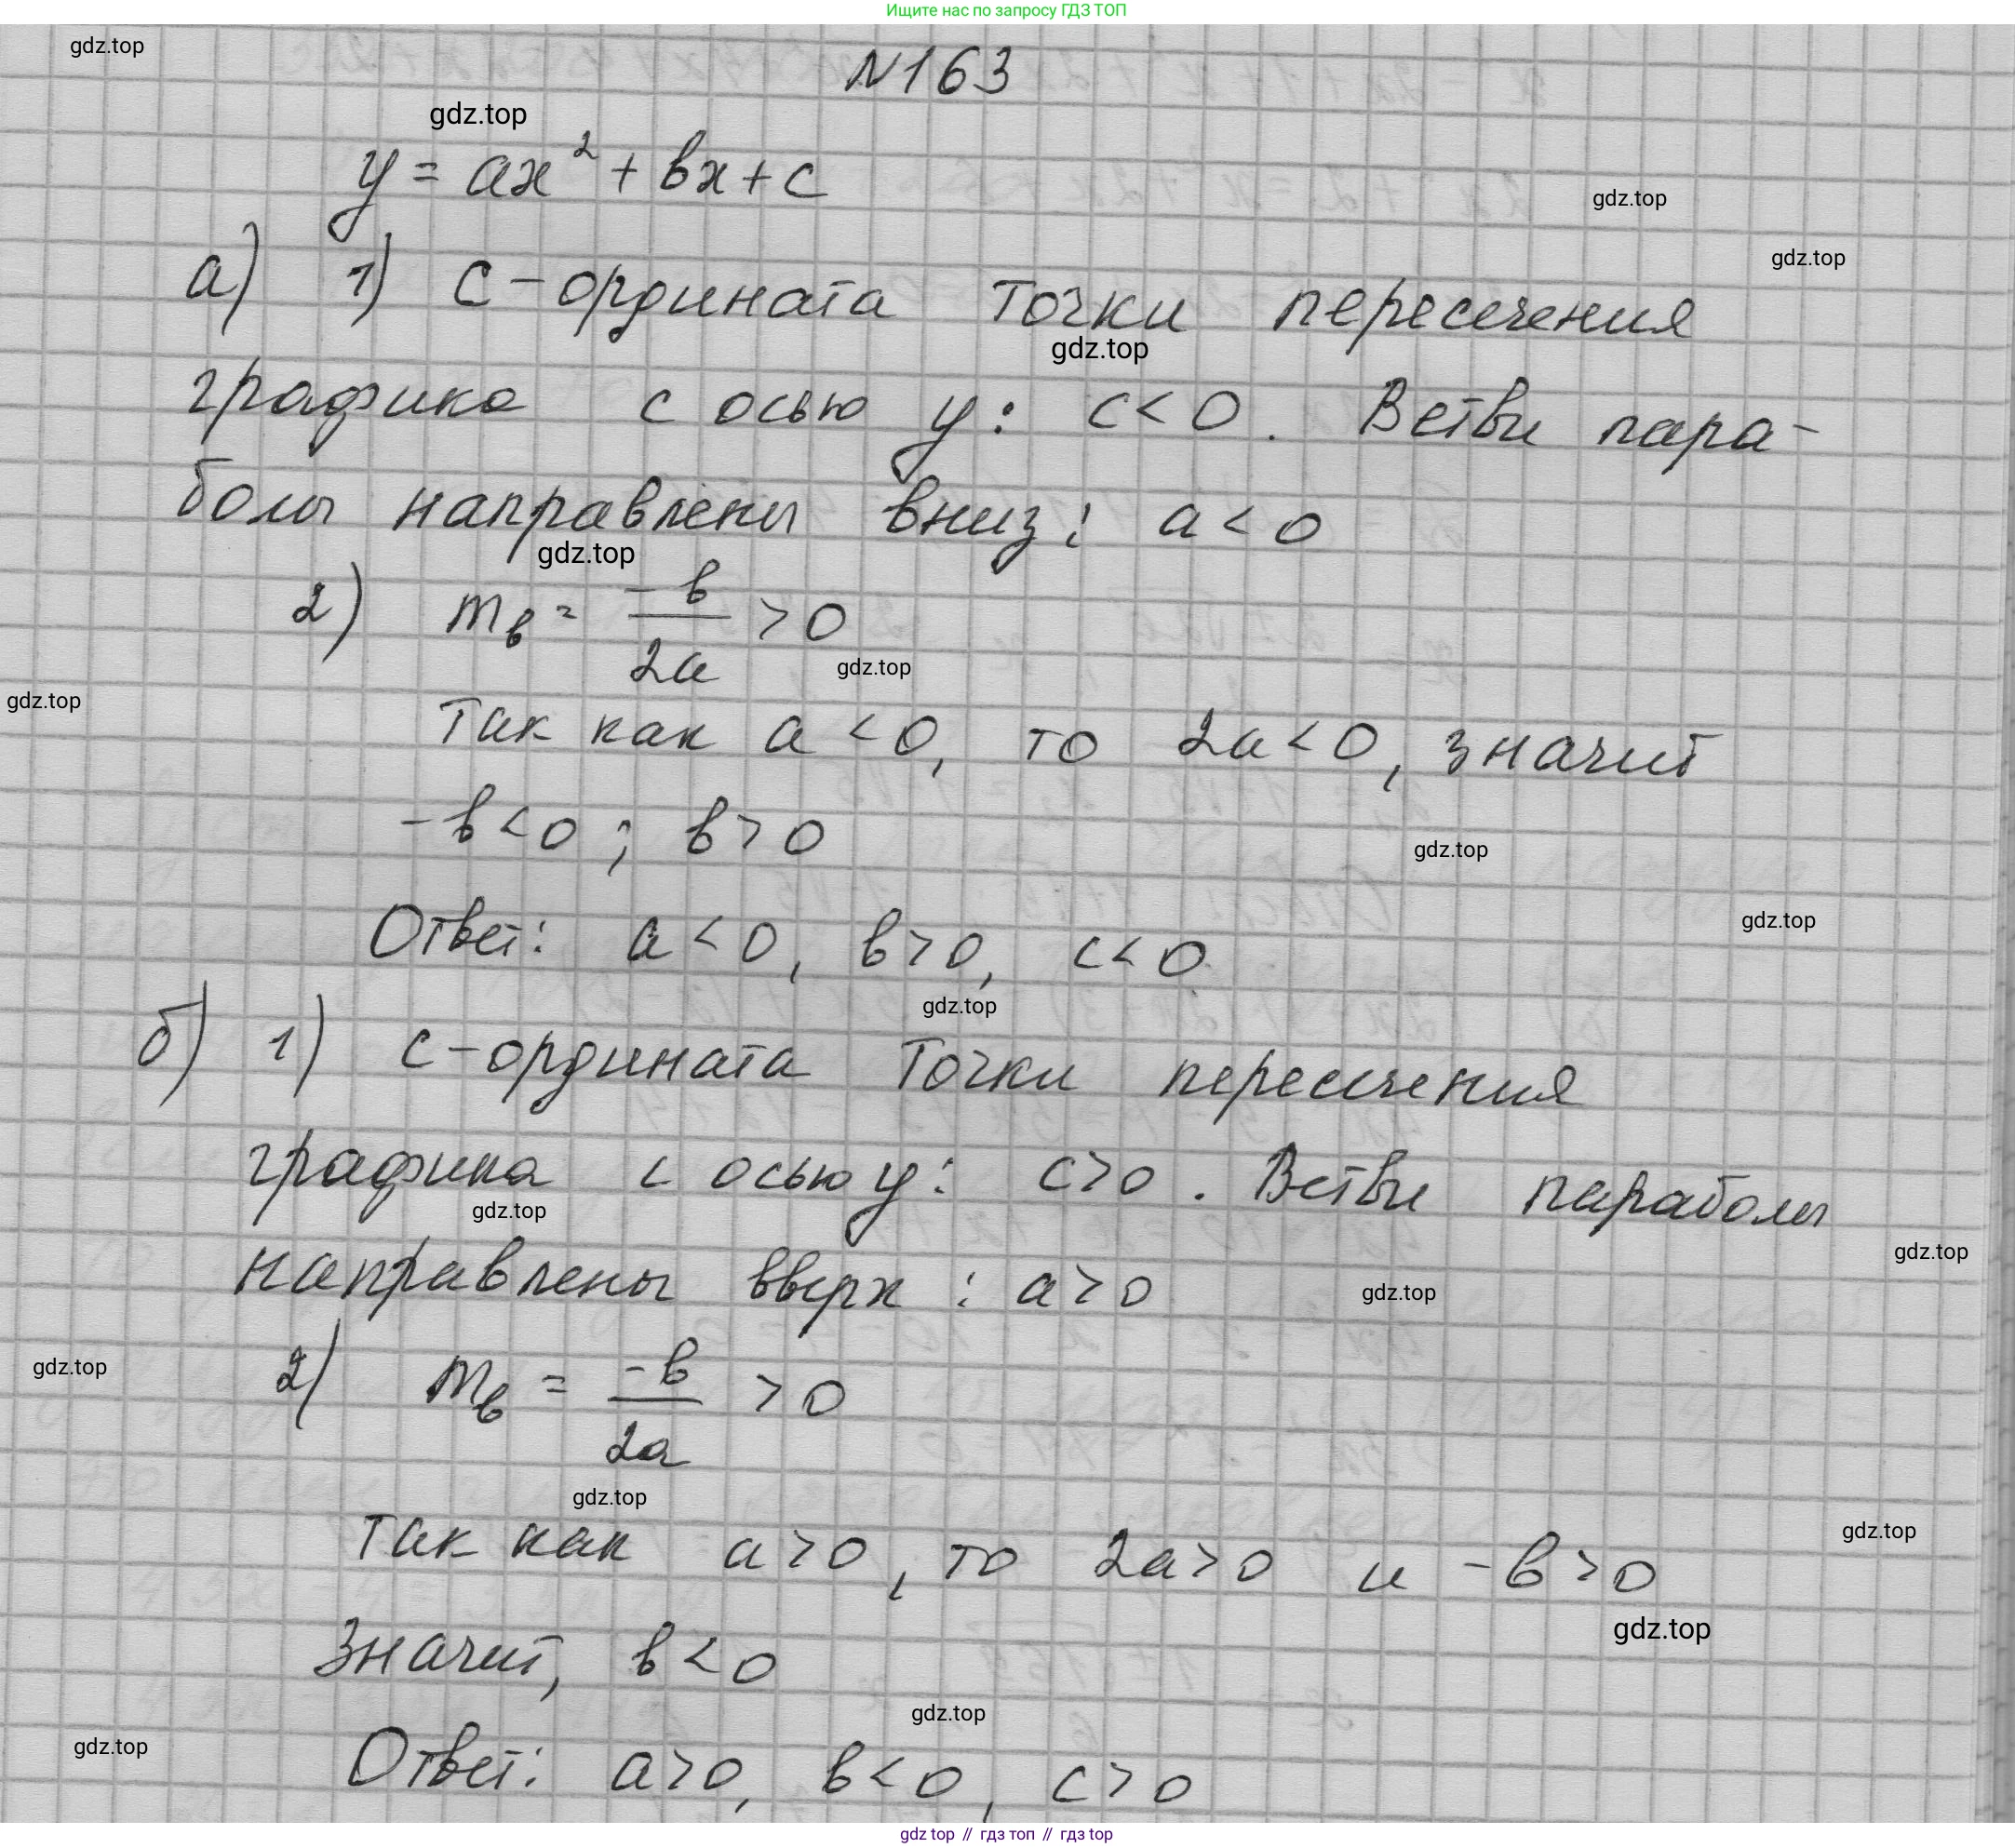 Ищите нас по запросу ГДЗ ТОП
gdz.top
№163
gdz.top
y = ax² + bx + c
gdz.top
gdz.top
а) 1) c - ордината точки пересечения
gdz.top
графика с осью y: c < 0. Ветви пара-
болы направлены вниз: a < 0
gdz.top
2) m_b = -b/2a > 0
gdz.top
gdz.top
Так как a < 0, то 2a < 0, значит
-b < 0; b > 0
gdz.top
gdz.top
Ответ: a < 0, b > 0, c < 0
gdz.top
б) 1) c - ордината точки пересечения
графика с осью y: c > 0. Ветви параболы
gdz.top
gdz.top
направлены вверх: a > 0
gdz.top
gdz.top
2) m_b = -b/2a > 0
gdz.top
gdz.top
Так как a > 0, то 2a > 0 и -b > 0
gdz.top
Значит, b < 0
gdz.top
gdz.top
Ответ: a > 0, b < 0, c > 0
gdz.top // гдз топ // гдз top